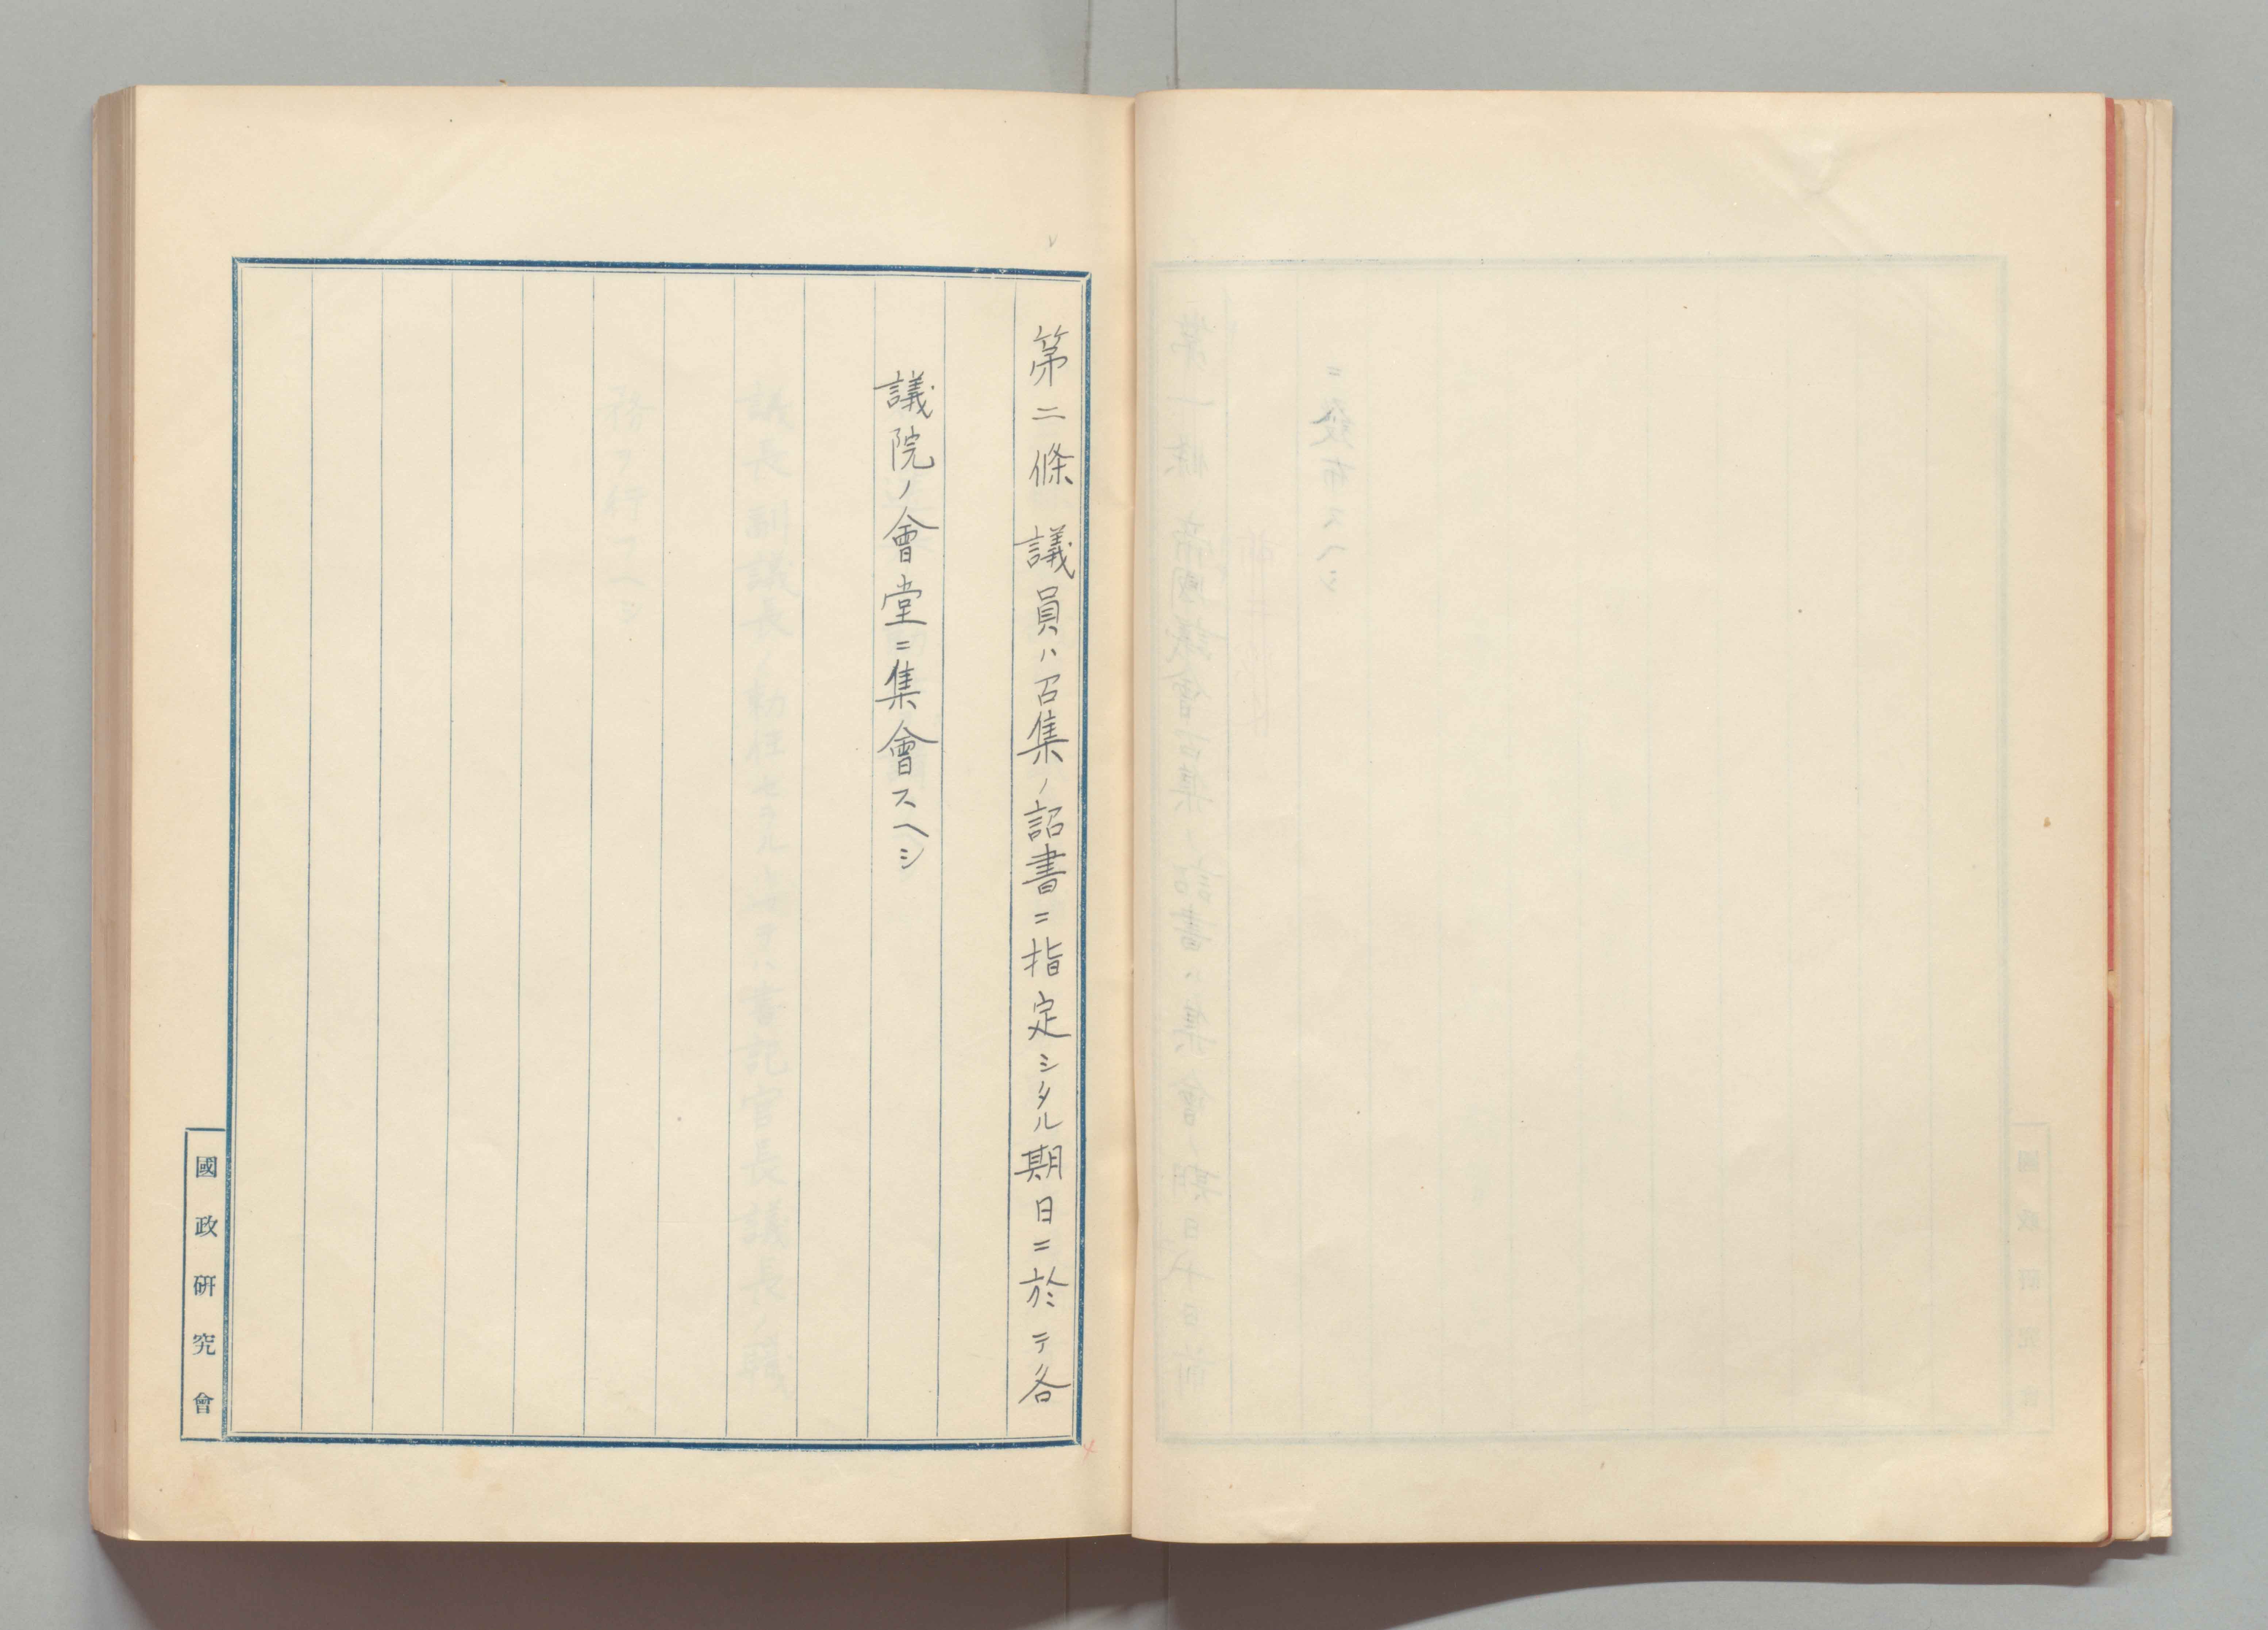 第二條 議員ハ召集ノ詔書ニ指定シタル期日ニ於テ各
議院ノ會堂ニ集會スヘシ
國政研究會